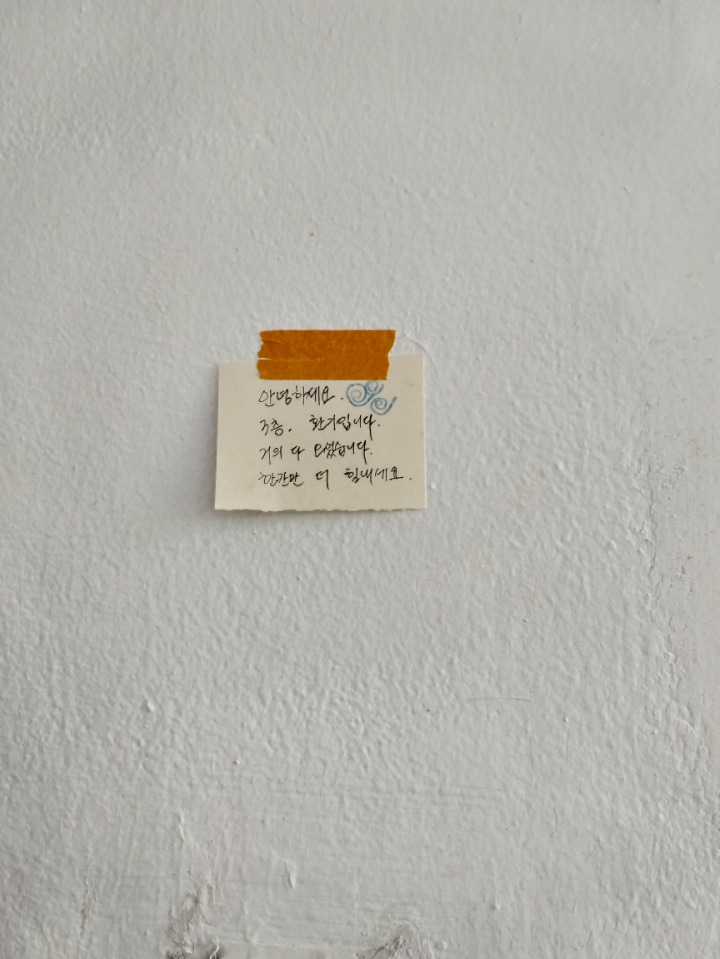 안녕하세요.
3층. 환기입니다.
거의 다 오셨습니다.
한칸만 더 힘내세요.